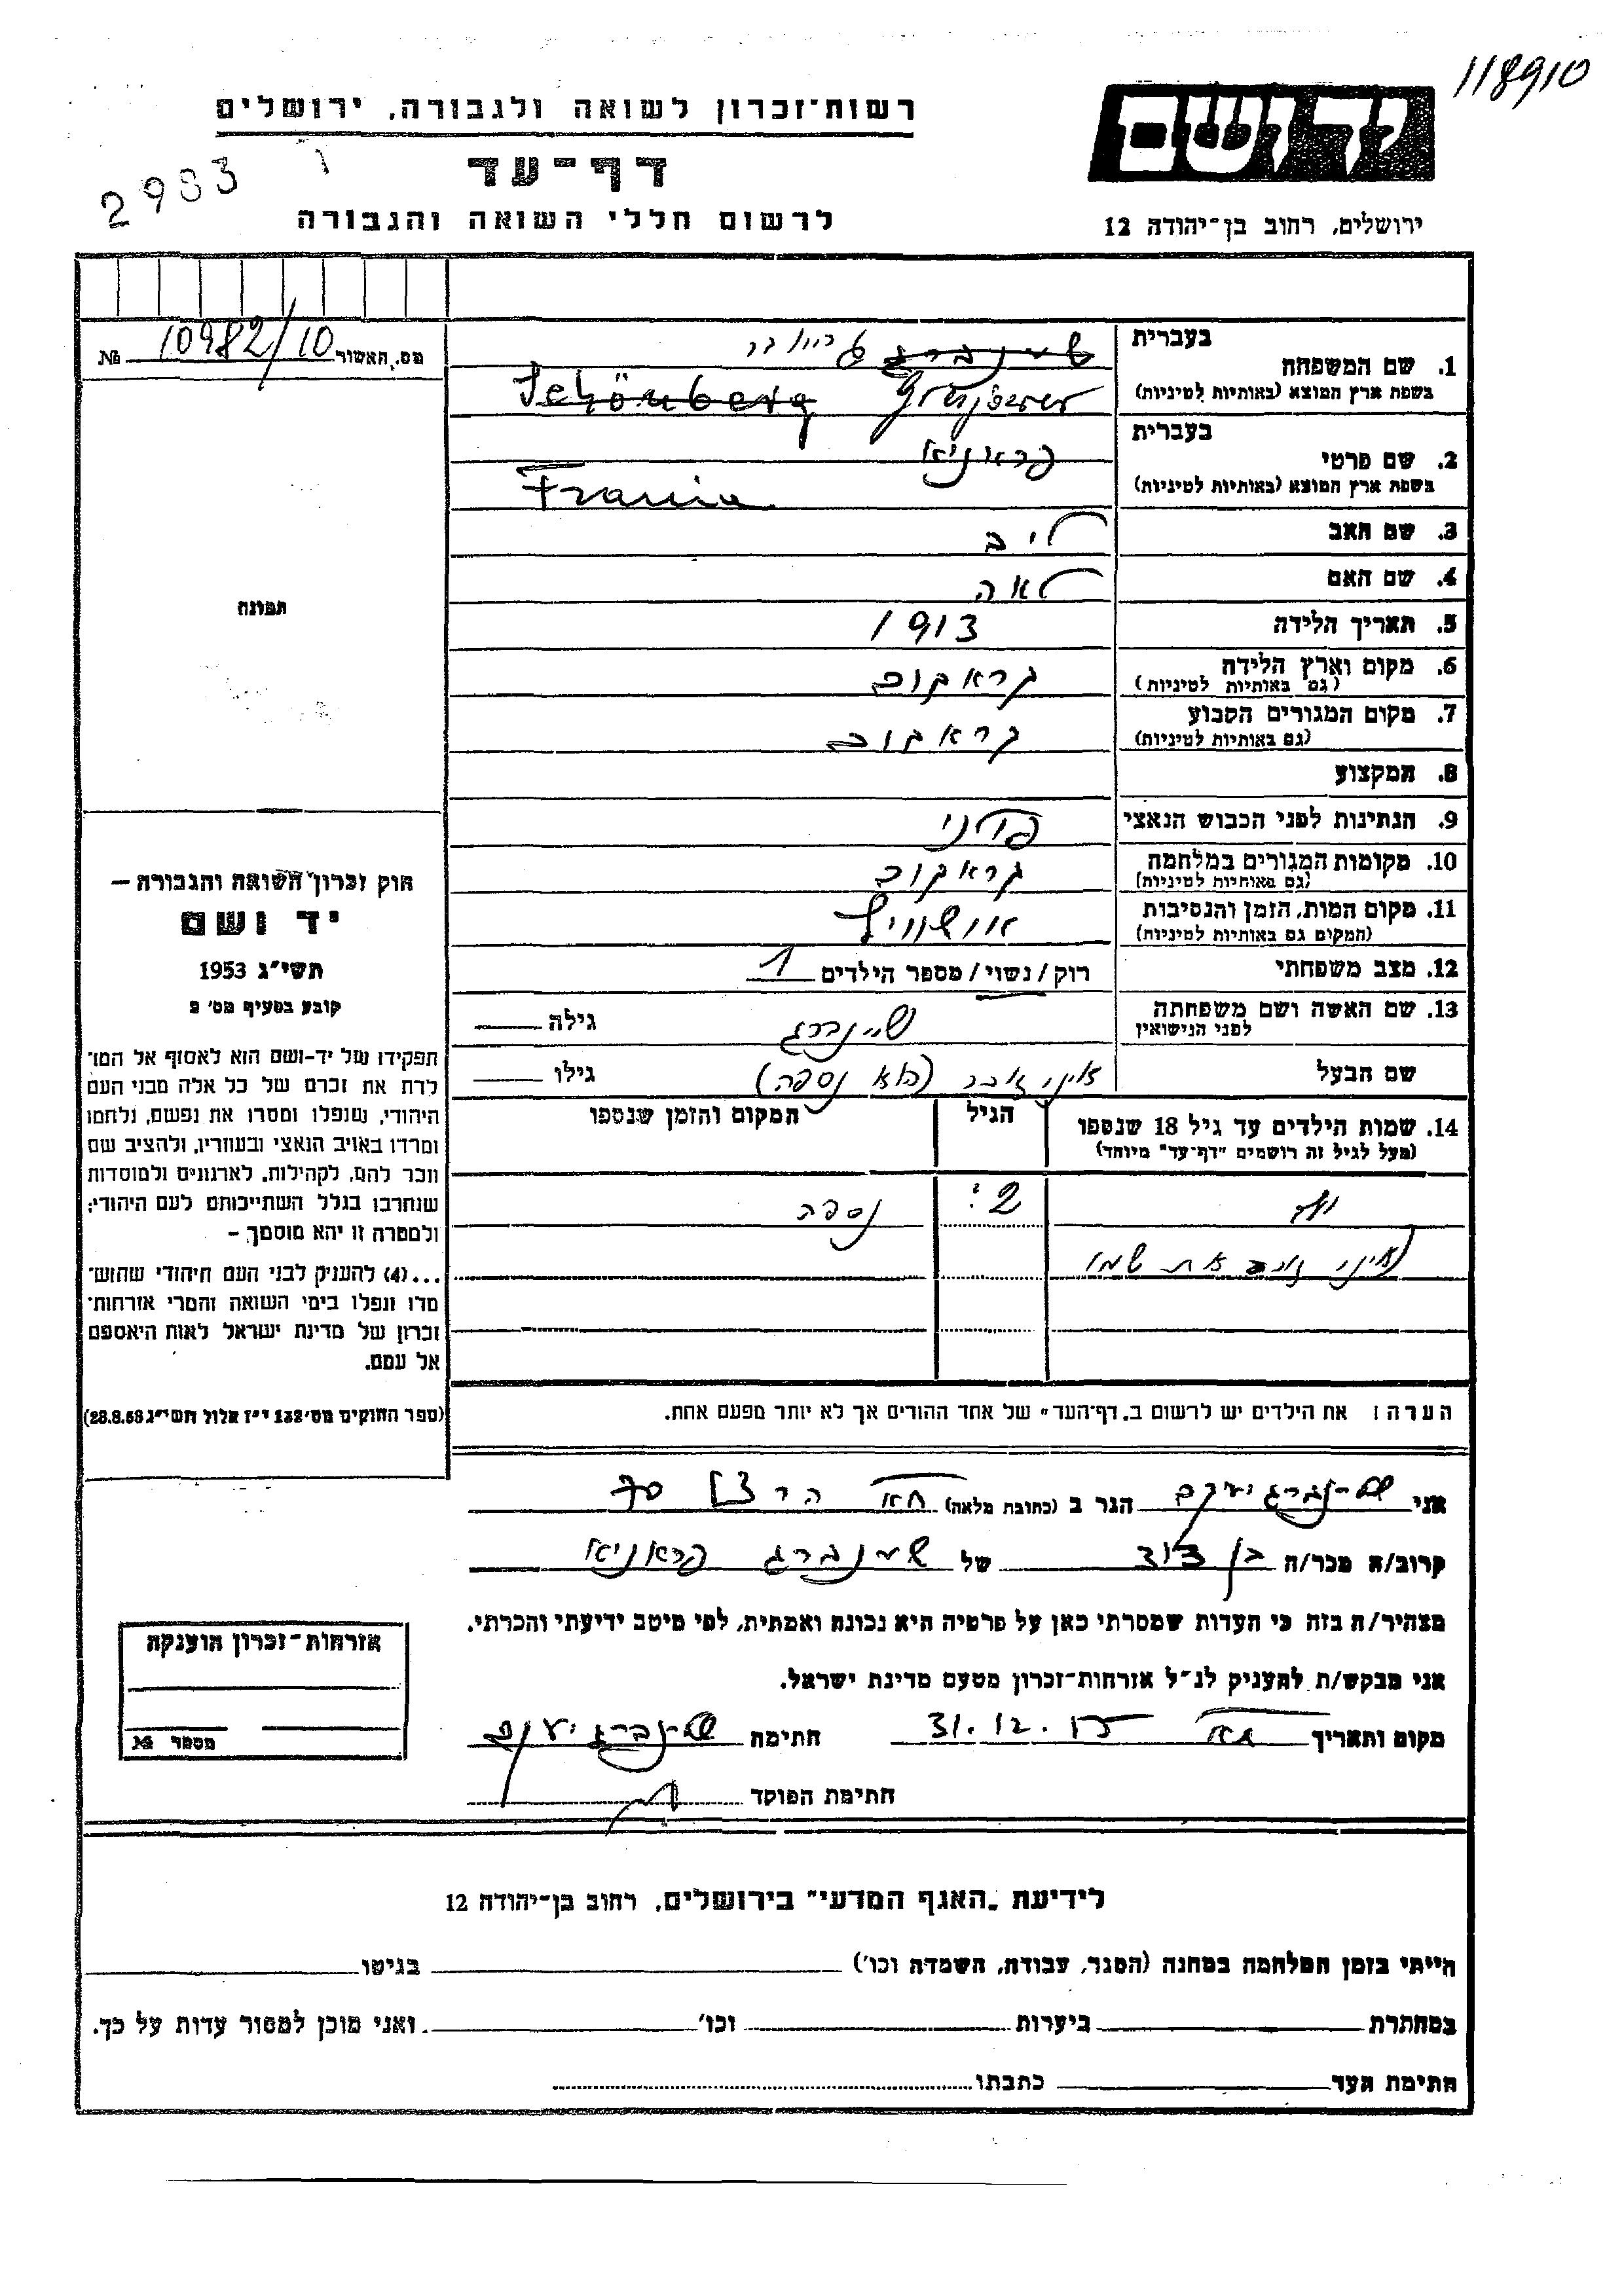 118910
יד ושם
רשות-זכרון לשואה ולגבורה, ירושלים
דף-עד
2933
לרשום חללי השואה והגבורה
ירושלים, רחוב בן-יהודה 12
מס, האשור 10982/10 №
בעברית
1. שם המשפחה שיינברג
בשפת ארץ המוצא (באותיות לטיניות) Schönberg
בעברית
2. שם פרטי פראניא
בשפת ארץ המוצא (באותיות לטיניות) Frania
3. שם האב ליב
4. שם האם לאה
5. תאריך הלידה 1913
6. מקום וארץ הלידה קראקוב
(גם באותיות לטיניות)
7. מקום המגורים הקבוע קראקוב
(גם באותיות לטיניות)
8. המקצוע
9. הנתינות לפני הכבוש הנאצי פולני
10. מקומות המגורים במלחמה קראקוב
(גם באותיות לטיניות)
11. מקום המות, הזמן והנסיבות אושוויץ
(המקום גם באותיות לטיניות)
12. מצב משפחתי רוק/נשוי/מספר הילדים 1
13. שם האשה ושם משפחתה שיינברג גילה
לפני הנישואין
שם הבעל (לא נספה) גילו
14. שמות הילדים עד גיל 18 שנספו הגיל המקום והזמן שנספו
(מעל לגיל זה רושמים "דף-עד" מיוחד)
ילד 2 נספה
(אינני זוכר את שמו
הערה: את הילדים יש לרשום ב"דף-העד" של אחד ההורים אך לא יותר מפעם אחת.
תמונה
חוק זכרון השואה והגבורה –
יד ושם
תשי"ג 1953
קובע בסעיף מס' 2
תפקידו של יד-ושם הוא לאסוף אל המו־
לדת את זכרם של כל אלה מבני העם
היהודי, שנפלו ומסרו את נפשם, נלחמו
ומרדו באויב הנאצי ובעוזריו, ולהציב שם
וזכר להם, לקהילות, לארגונים ולמוסדות
שנחרבו בגלל השתייכותם לעם היהודי;
ולמטרה זו יהא מוסמך –
...(4) להעניק לבני העם היהודי שהוש־
מדו ונפלו בימי השואה והמרי אזרחות־
זכרון של מדינת ישראל לאות היאספם
אל עמם.
(ספר החוקים מס' 132 י"ז אלול תשי"ג 28.8.53)
אני שיינברג יעקב הגר ב (כתובת מלאה) ת"א הרצל 70
קרוב/ה מכר/ה בן דוד של שיינברג פראניא
מצהיר/ה בזה כי העדות שמסרתי כאן על פרטיה היא נכונה ואמתית, לפי מיטב ידיעתי והכרתי.
אני מבקש/ת להעניק לנ"ל אזרחות-זכרון מטעם מדינת ישראל.
מקום ותאריך ת"א 31.12. חתימה שיינברג יעקב
חתימת הפוקד
אזרחות-זכרון הוענקה
מספר №
לידיעת "האגף המדעי" בירושלים, רחוב בן-יהודה 12
הייתי בזמן המלחמה במחנה (הסגר, עבודה, השמדה וכו') בגיטו
במחתרת ביערות וכו' ואני מוכן למסור עדות על כך.
חתימת העד כתבתו